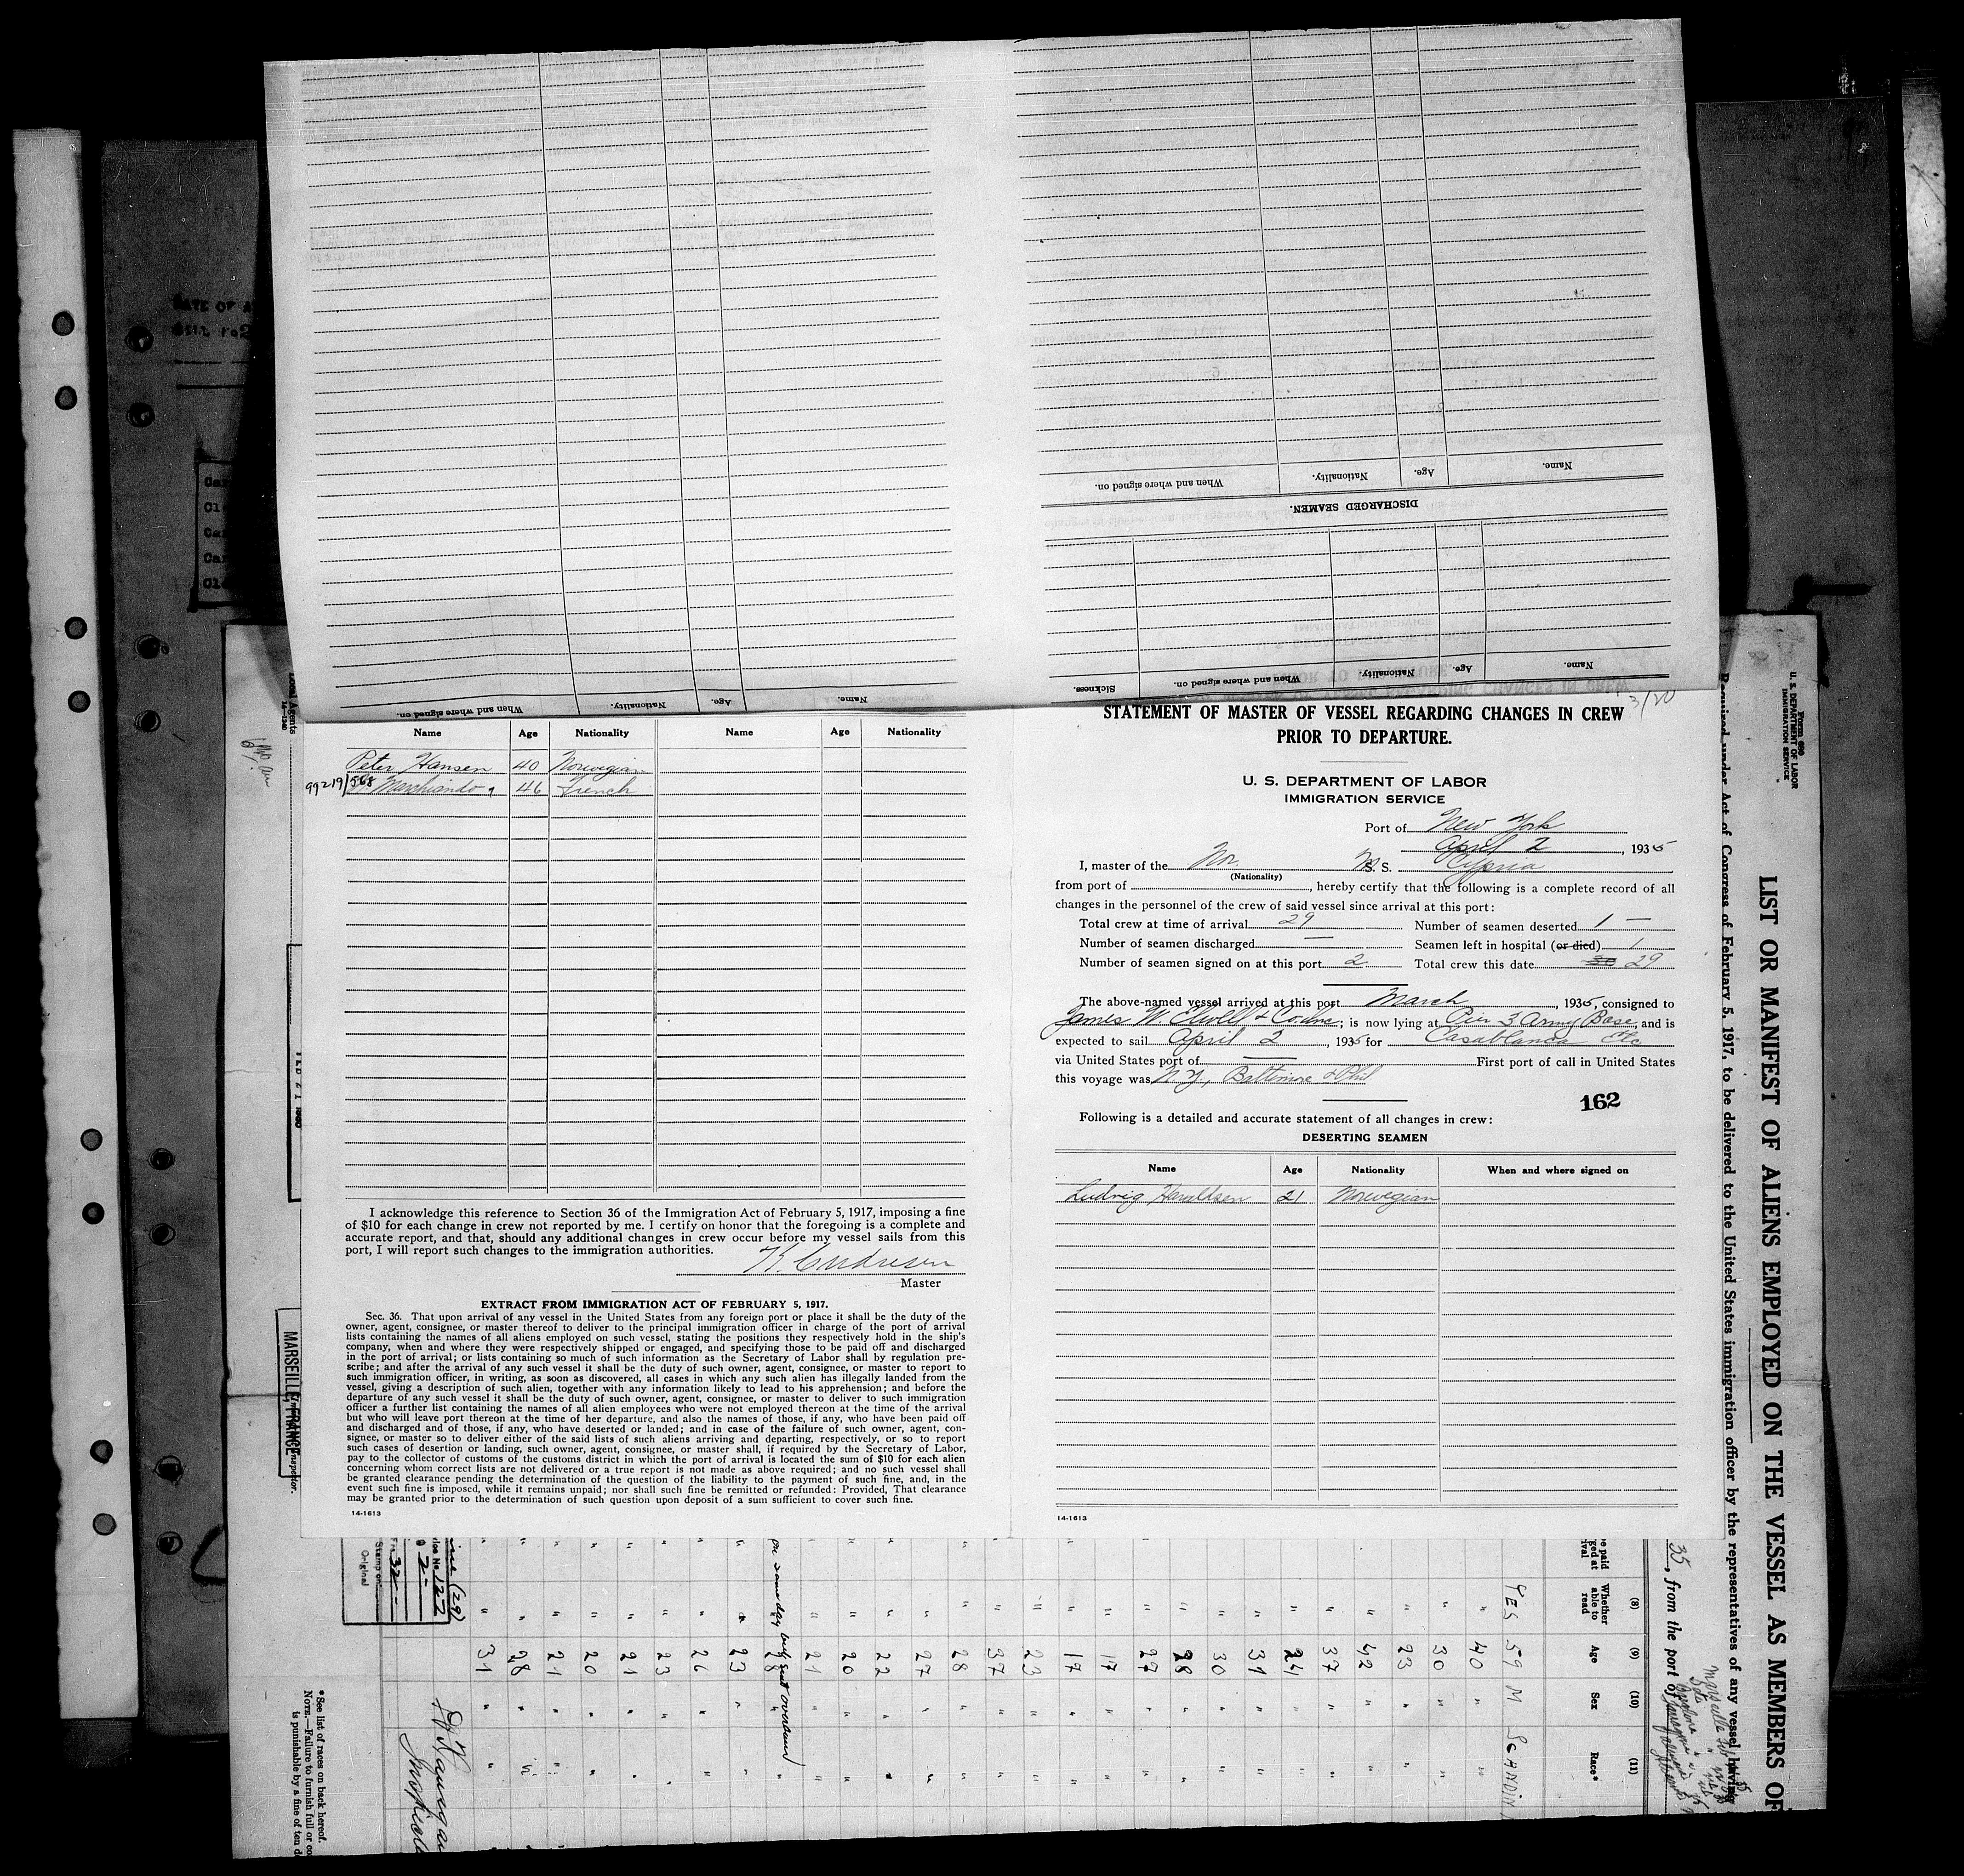 When and where signed on.
Nationality.
Age.
Name.
DISCHARGED SEAMEN.
Sickness.
When and where signed on.
Nationality.
Age.
Name.
When and where signed on.
Nationality.
Age.
Name.
Name Age Nationality Name Age Nationality
Peter Hansen 40 Norwegian
99219/568 Marchiando 46 French
I acknowledge this reference to Section 36 of the Immigration Act of February 5, 1917, imposing a fine
of $10 for each change in crew not reported by me. I certify on honor that the foregoing is a complete and
accurate report, and that, should any additional changes in crew occur before my vessel sails from this
port, I will report such changes to the immigration authorities.
K. Andresen
Master
EXTRACT FROM IMMIGRATION ACT OF FEBRUARY 5, 1917.
Sec. 36. That upon arrival of any vessel in the United States from any foreign port or place it shall be the duty of the
owner, agent, consignee, or master thereof to deliver to the principal immigration officer in charge of the port of arrival
lists containing the names of all aliens employed on such vessel, stating the positions they respectively hold in the ship's
company, when and where they were respectively shipped or engaged, and specifying those to be paid off and discharged
in the port of arrival; or lists containing so much of such information as the Secretary of Labor shall by regulation pre-
scribe; and after the arrival of any such vessel it shall be the duty of such owner, agent, consignee, or master to report to
such immigration officer, in writing, as soon as discovered, all cases in which any such alien has illegally landed from the
vessel, giving a description of such alien, together with any information likely to lead to his apprehension; and before the
departure of any such vessel it shall be the duty of such owner, agent, consignee, or master to deliver to such immigration
officer a further list containing the names of all alien employees who were not employed thereon at the time of the arrival
but who will leave port thereon at the time of her departure, and also the names of those, if any, who have been paid off
and discharged and of those, if any, who have deserted or landed; and in case of the failure of such owner, agent, con-
signee, or master so to deliver either of the said lists of such aliens arriving and departing, respectively, or so to report
such cases of desertion or landing, such owner, agent, consignee, or master shall, if required by the Secretary of Labor,
pay to the collector of customs of the customs district in which the port of arrival is located the sum of $10 for each alien
concerning whom correct lists are not delivered or a true report is not made as above required; and no such vessel shall
be granted clearance pending the determination of the question of the liability to the payment of such fine, and, in the
event such fine is imposed, while it remains unpaid; nor shall such fine be remitted or refunded: Provided, That clearance
may be granted prior to the determination of such question upon deposit of a sum sufficient to cover such fine.
14-1613
3/20
STATEMENT OF MASTER OF VESSEL REGARDING CHANGES IN CREW
PRIOR TO DEPARTURE.
U. S. DEPARTMENT OF LABOR
IMMIGRATION SERVICE
Port of New York
April 2, 1935
I, master of the Nor. M S. S. Cypria
(Nationality)
from port of , hereby certify that the following is a complete record of all
changes in the personnel of the crew of said vessel since arrival at this port:
Total crew at time of arrival 29 Number of seamen deserted 1 —
Number of seamen discharged — Seamen left in hospital (or died) 1
Number of seamen signed on at this port 2 Total crew this date 30 29
The above-named vessel arrived at this port March , 1935, consigned to
James W. Elwell & Co Inc; is now lying at Pier 3 Army Base, and is
expected to sail April 2, 1935 for Casablanca Etc
via United States port of — First port of call in United States
this voyage was N.Y., Baltimore & Phil
162
Following is a detailed and accurate statement of all changes in crew:
DESERTING SEAMEN
Name Age Nationality When and where signed on
Ludvig Haraldsen 21 Norwegian
14-1613
Form 680
U. S. DEPARTMENT OF LABOR
IMMIGRATION SERVICE
LIST OR MANIFEST OF ALIENS EMPLOYED ON THE VESSEL AS MEMBERS OF
Required under Act of Congress of February 5, 1917, to be delivered to the United States immigration officer by the representatives of any vessel having
35, from the port of
(8) (9) (10) (11)
Whether able to read Age Sex Race*
YES 59 M SCANDIN
40
30
23
42
37
24
31
30
28
27
17
17
23
37
28
27
22
20
21
28
23
26
23
21
20
21
28
31
Stamp on
Original
Local Agents
MARSEILLE, FRANCE
Inspector.
*See list of races on back hereof.
NOTE.—Failure to furnish full or
is punishable by a fine of ten